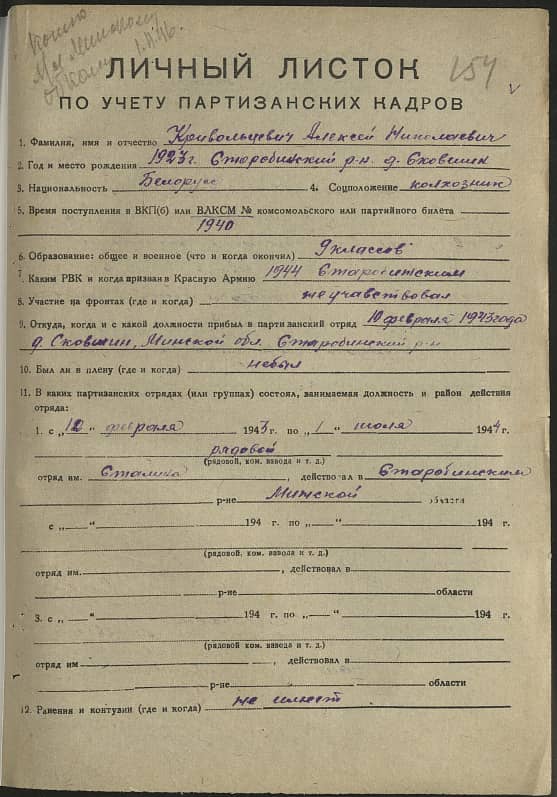 копию
Минскому
обкому 1.11.46.
154
ЛИЧНЫЙ ЛИСТОК
ПО УЧЕТУ ПАРТИЗАНСКИХ КАДРОВ
1. Фамилия, имя и отчество Кривольцевич Алексей Николаевич
2. Год и место рождения 1923г. Старобинский р-н. д. Сковшин
3. Национальность Белорус 4. Соцположение колхозник
5. Время поступления в ВКП(б) или ВЛКСМ № комсомольского или партийного билета
1940
6. Образование: общее и военное (что и когда окончил) 9 классов
7. Каким РВК и когда призван в Красную Армию 1944 Старобинским
8. Участие на фронтах (где и когда) не учавствовал
9. Откуда, когда и с какой должности прибыл в партизанский отряд 10 февраля 1943 года
д. Сковшин, Минской обл. Старобинский р-н
10. Был ли в плену (где и когда) небыл
11. В каких партизанских отрядах (или группах) состоял, занимаемая должность и район действия
отряда:
1. с „10" февраля 1943 г. по „1" июля 1944 г.
рядовой
(рядовой, ком. взвода и т. д.)
отряд им. Сталина, действовал в Старобинским
р-не Минской области
с „ " 194 г. по „ " 194 г.
(рядовой, ком. взвода и т. д.)
отряд им. , действовал в
р-не области
3. с „ " 194 г. по „ " 194 г.
(рядовой, ком. взвода и т. д.)
отряд им , действовал в
р-не области
12. Ранения и контузии (где и когда) не имеет